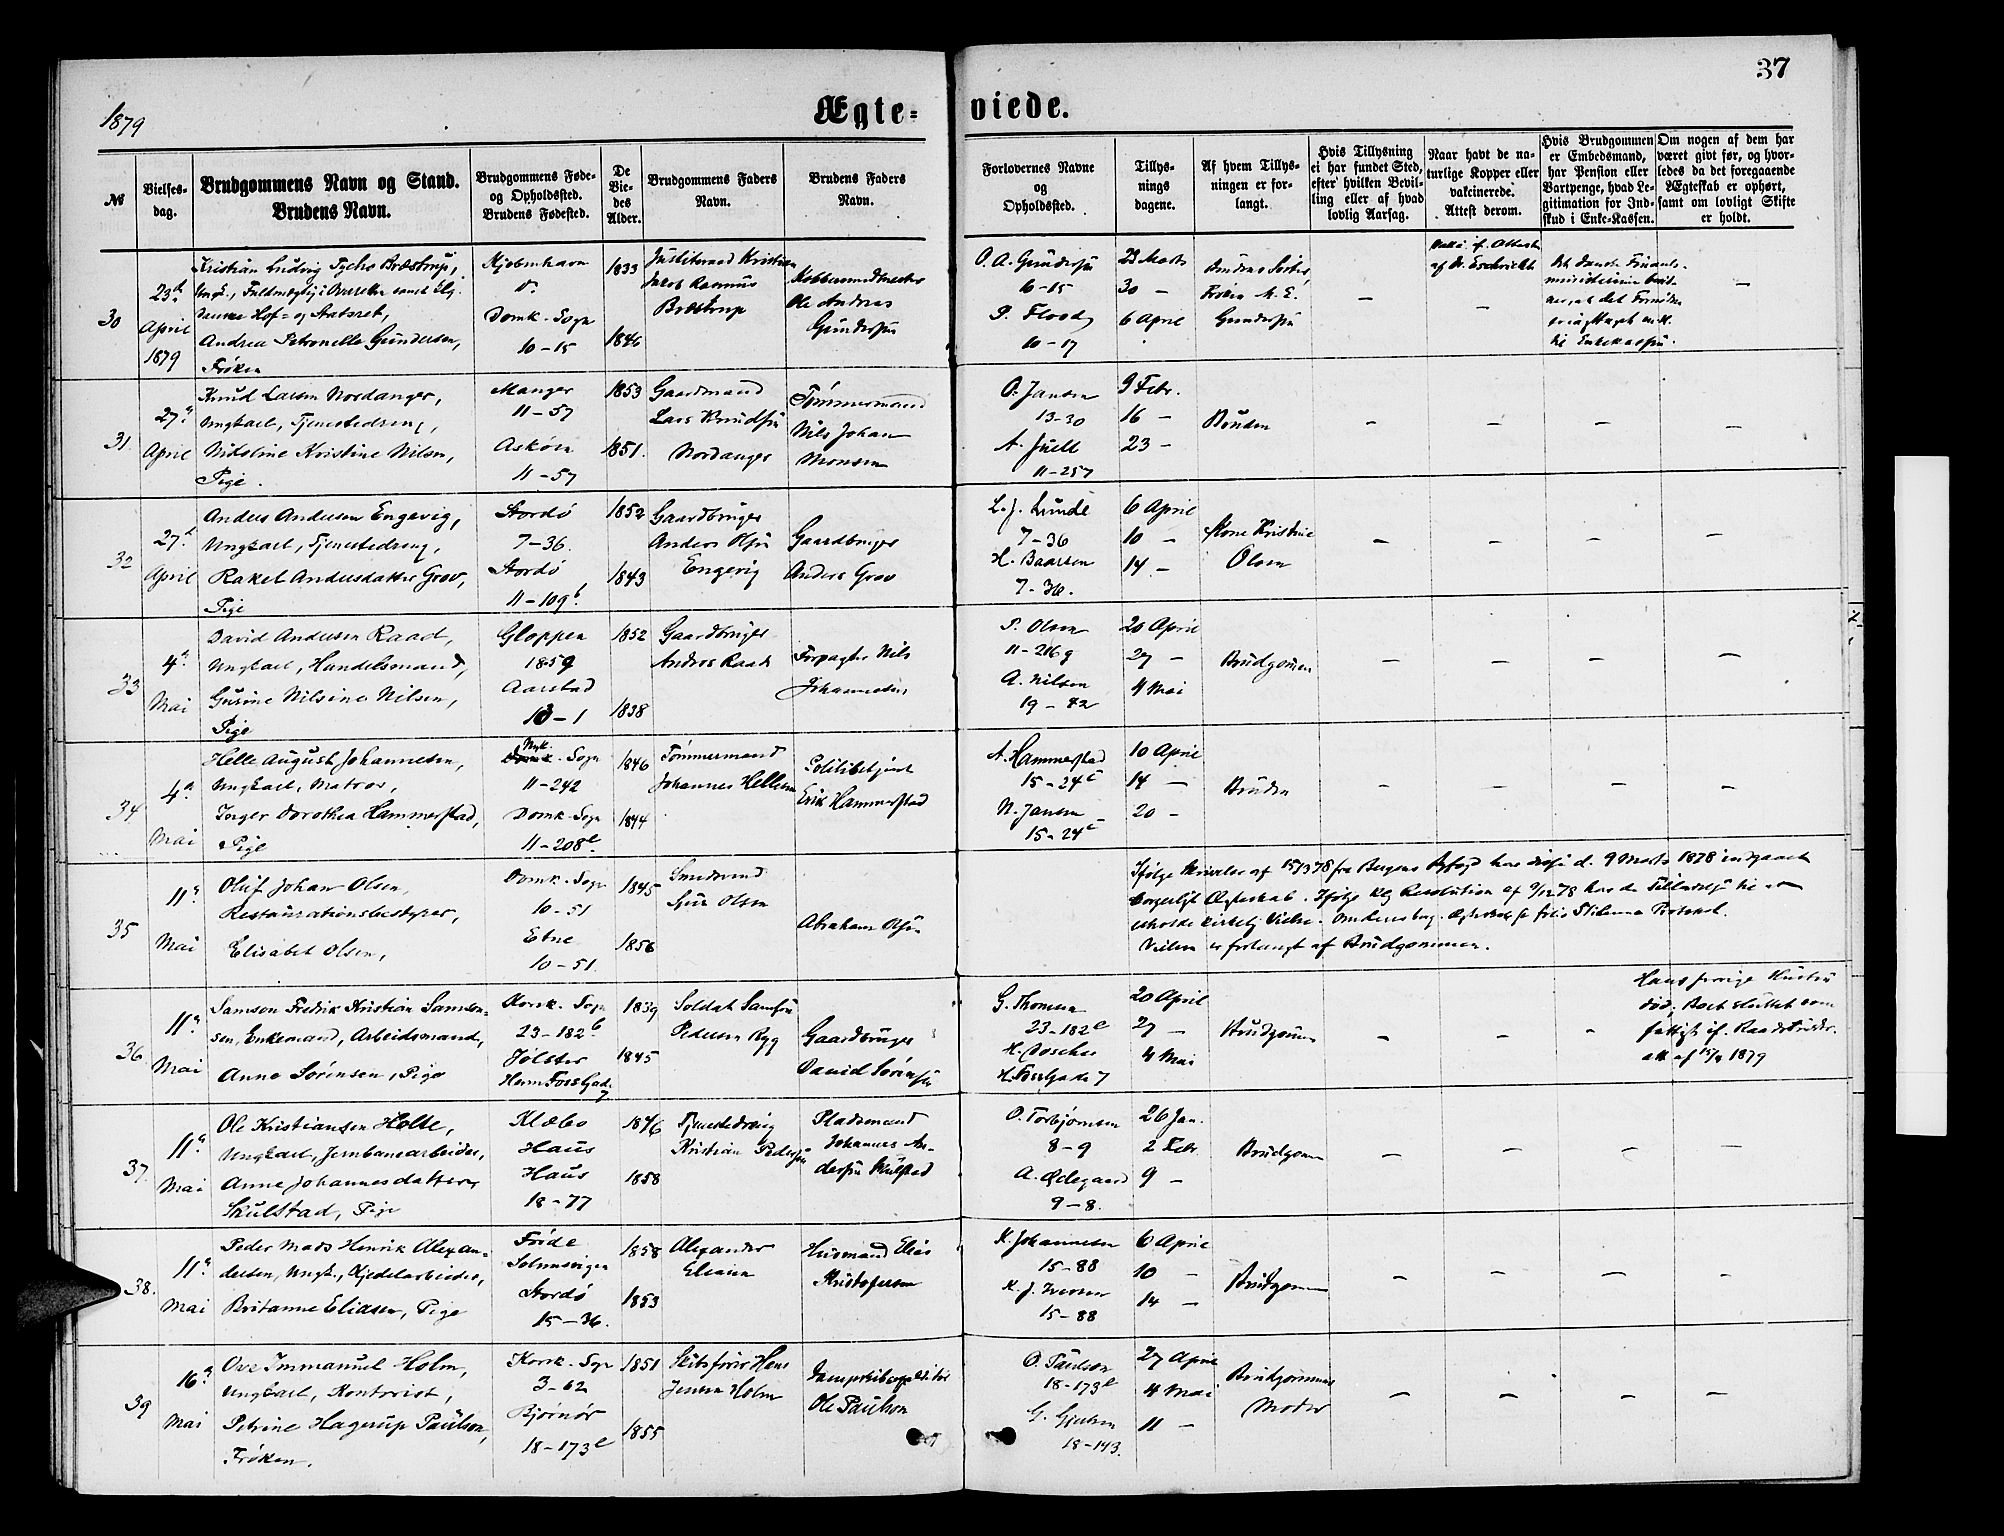 37
1879
Ægte-
viede.
№
Vielses-
dag.
Brudgommens Navn og Stand.
Brudens Navn.
Brudgommens Føde-
og Opholdssted.
Brudens Fødested.
De
Vie-
des
Alder.
Brudgommens Faders
Navn.
Brudens Faders
Navn.
Forlovernes Navne
og
Opholdssted.
Tillys-
nings
dagene.
Af hvem Tillys-
ningen er for-
langt.
Hvis Tillysning
ei har fundet Sted,
efter hvilken Bevil-
ling eller af hvad
lovlig Aarsag.
Naar havt de na-
turlige Kopper eller
vakcinerede.
Attest derom.
Hvis Brudgommen
er Embedsmand,
har Pension eller
Vartpenge, hvad Le-
gitimation for Ind-
skud i Enke-Kassen.
Om nogen af dem har
været givt før, og hvor-
ledes da det foregaaende
Ægteskab er ophørt,
samt om lovligt Skifte
er holdt.
30
23de
April
1879
Kristian Ludvig Tycho Bræstrup,
Hof- og
Andrea Petronelle Gundersen,
Frøken
Kjøbenhavn
Domk. Sogn
10-15
1833
1846
Kristian
Jakob Rasmus
Bræstrup
Ole Andreas
Gundersen
O. A. Gundersen
6-15
P. Flood
10-17
23 Marts
30 -
6 April
Brudens Søster
Frøken M. E.
Gundersen
-
-
-
31
27de
April
Knud Larsen Nordanger,
Ungkarl, Tjenestedreng,
Nikoline Kristine Nilsen,
Pige.
Manger
11-57
Askøen
11-57
1853
1851.
Gaardmand
Lars Knudsen
Nordanger
Tømmermand
Nils Johan
Monsen
O. Jansen
13-30
A. Juell
11-257
9 Febr.
16 -
23 -
Bruden
-
-
-
-
32
27de
April
Anders Andersen Engevig,
Ungkarl, Tjenestedreng,
Rakel Andersdatter Grov,
Pige
Stordø
7-36.
Stordø
11-109b.
1852
1843
Gaardbruger
Anders Olsen
Engevig
Gaardbruger
Anders Grov
L. J. Lunde
7-36
H. Baarsen
7-36.
6 April
10 -
14 -
Kristine
Olsen
-
-
-
-
33
4de
Mai
David Andersen Raad,
Ungkarl, Handelsmand,
Gurine Nilsine Nilsen,
Pige
Gloppen
1859
Aarstad
13-1
1852
1838
Gaardbruger
Anders Raad
Forpagter Nils
Johannesen
P. Olsen
11-216g
A. Nilsen
19-42
20 April
27 -
4 Mai
Brudgommen
-
-
-
-
34
4de
Mai
Helle August Johannesen,
Ungkarl, Matros,
Inger Dorothea Hammerstad,
Pige
Nyk. Sogn
11-242
Domk. Sogn
11-208e.
1846
1844
Tømmermand
Johannes Hellesen
Politibetjent
Erik Hammerstad
A. Hammerstad
15-24c
N. Jansen
15-24c
10 April
14 -
20 -
Bruden
-
-
-
-
35
11de
Mai
Oluf Johan Olsen,
Restaurationsbestyrer,
Elisabet Olsen,
Domk. Sogn
10-51
Etne
10-51.
1845
1856
Smedsvend
Sjur Olsen
Abraham Olsen
Ifølge Skrivelse af 15/3 78 fra Bergens Byfoged have disse d. 9 Marts 1878 indgaaet
borgerligt Ægteskab. Ifølge Kgl Resolution af 9/12 78 har de Tilladelse til at
erholde kirkelig Vielse.
Vielsen er forlangt af Brudgommen.
36
11de
Mai
Samson Fredrik Kristian Samson-
sen, Enkemand, Arbeidsmand,
Anne Sørensen, Pige
Korsk. Sogn
23-182b
Jølster
Herm Foss Gade
7
1839
1845
Soldat Samson
Pedersen Ryg
Gaardbruger
David Sørensen
G. Thomsen
23-182e
H. Foss Gade 7
20 April
27 -
4 Mai
Brudgommen
-
-
-
Hans forrige Hustru
død, Boet sluttet som
fattigt if. Raadstueskr.
att af 15/4 1879
37.
11de
Mai
Ole Kristiansen Holte,
Ungkarl, Jernbanearbeider,
Anne Johannesdatter
Skulstad, Pige
Klæbo
Haus
Haus
18-77
1846
1858
Tjenestedreng
Kristian Pedersen
Pladsmand
Johannes An-
dersen Skulstad
O. Torbjørnsen
8-9
A. Ødegaard
9-8.
26 Jan.
2 Febr.
9 -
Brudgommen
-
-
-
-
38.
11de
Mai
Peder Mads Henrik Alexan-
dersen, Ungk., Kjedelarbeider,
Britanne Eliasen, Pige
Førde
Solheimsvigen
Stordø
15-36.
1858
1853
Alexander
Eliasen
Husmand Elias
Kristofersen
K. Johannesen
15-88
K. J. Iversen
15-88
6 April
10 -
14 -
Brudgommen
-
-
-
-
39
16de
Mai
Ove Immanuel Holm,
Ungkarl, Kontorist,
Petrine Hagerup Paulson,
Frøken.
Korsk. Sogn
3-62
Bjørnør
18-173e
1851
1855
Skibsfører Hans
Jensen Holm
Ole Paulson
O. Paulson
18-173e
G. Gjertsen
18-143.
27 April
4 Mai
11 -
Brudgommens
Moder
-
-
-
-